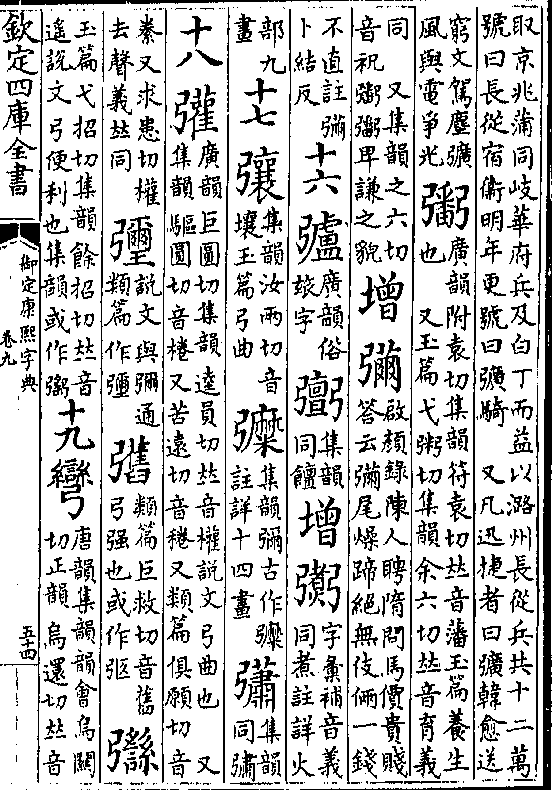 取京兆蒲同岐華府兵及白丁而益以潞州長從兵共十二萬
號曰長從宿衛明年更號曰彍騎 又凡迅捷者曰彍韓愈送
窮文駕塵彍
風與電爭光
廣韻附袁切集韻符袁切𠀤音藩玉篇養生
也 又玉篇弋粥切集韻余六切𠀤音育義
同 又集韻之六切
音祝粥粥卑謙之貌
增 彌
啟顏錄陳人聘隋問馬價貴賤
答云彌尾燥蹄絕無伎倆一錢
不直註彌
卜結反
十六
廣韻俗
玈字
集韻
同饘
增
字彙補音義
同煮註詳火
部九
畫
十七
集韻汝兩切音
壤玉篇弓曲
集韻彌古作
註詳十四畫
集韻
同彇
十八
廣韻巨圓切集韻逵員切𠀤音權說文弓曲也 又
集韻驅圓切音棬又苦遠切音又類篇俱願切音
又求患切權
去聲義𠀤同
說文與彌通
類篇作
類篇巨救切音舊
弓强也或作
玉篇弋招切集韻餘招切𠀤音
遙說文弓便利也集韻或作
十九 彎
唐韻集韻韻會烏關
切正韻烏還切𠀤音
欽定四庫全書
御定康熙字典
卷九
五十四